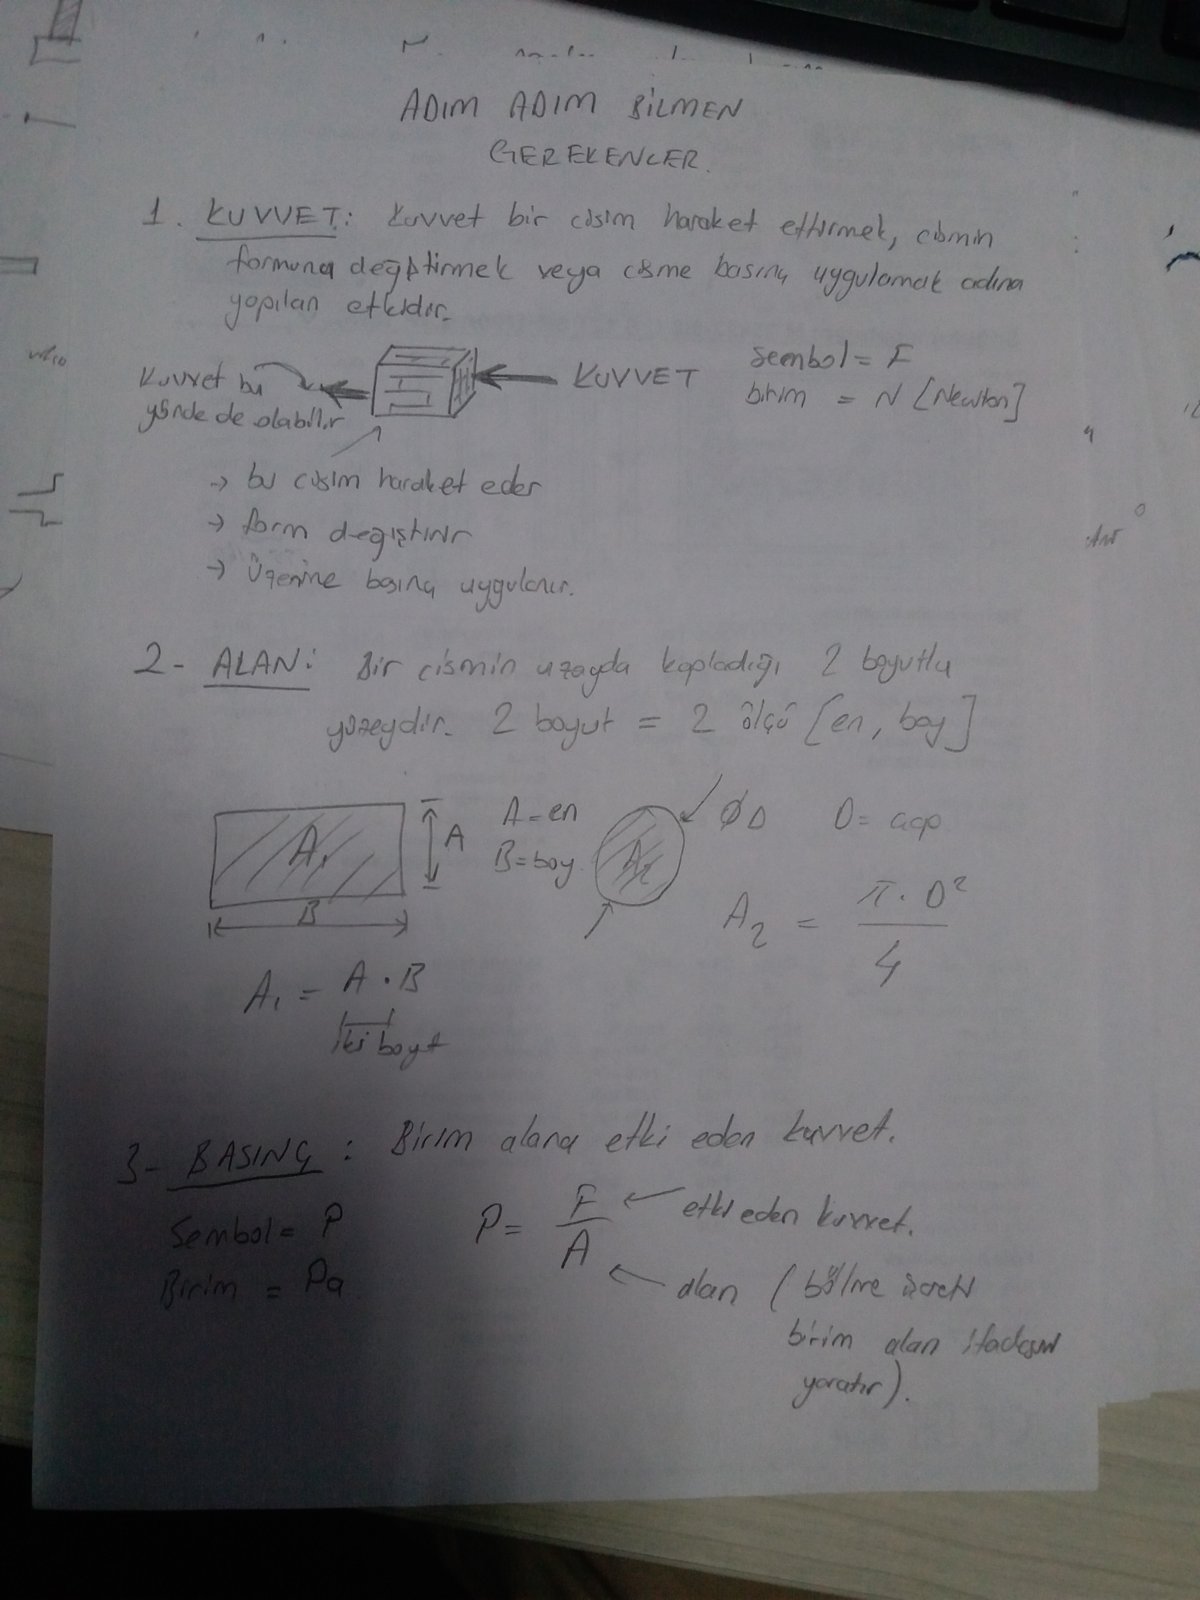 ADIM ADIM BİLMEN
GEREKENLER.
1. KUVVET: Kuvvet bir cisim haraket ettirmek, cismin
formunu değiştirmek veya cisme basınç uygulamak adına
yapılan etkidir.
Kuvvet bu
yönde de olabilir
KUVVET
Sembol = F
birim = N [Newton]
→ bu cisim haraket eder
→ form değiştirir
→ Üzerine basınç uygulanır.
2- ALAN: Bir cismin uzayda kapladığı 2 boyutlu
yüzeydir. 2 boyut = 2 ölçü [en, boy]
A₁
A
B
A = en
B = boy
A₂
ØD
D = çap
A₂ = π·D²/4
A₁ = A·B
iki boyut
3- BASINÇ: Birim alana etki eden kuvvet.
Sembol = P
Birim = Pa
P = F/A
etki eden kuvvet.
alan (bölme işareti
birim alan ifadesini
yaratır).